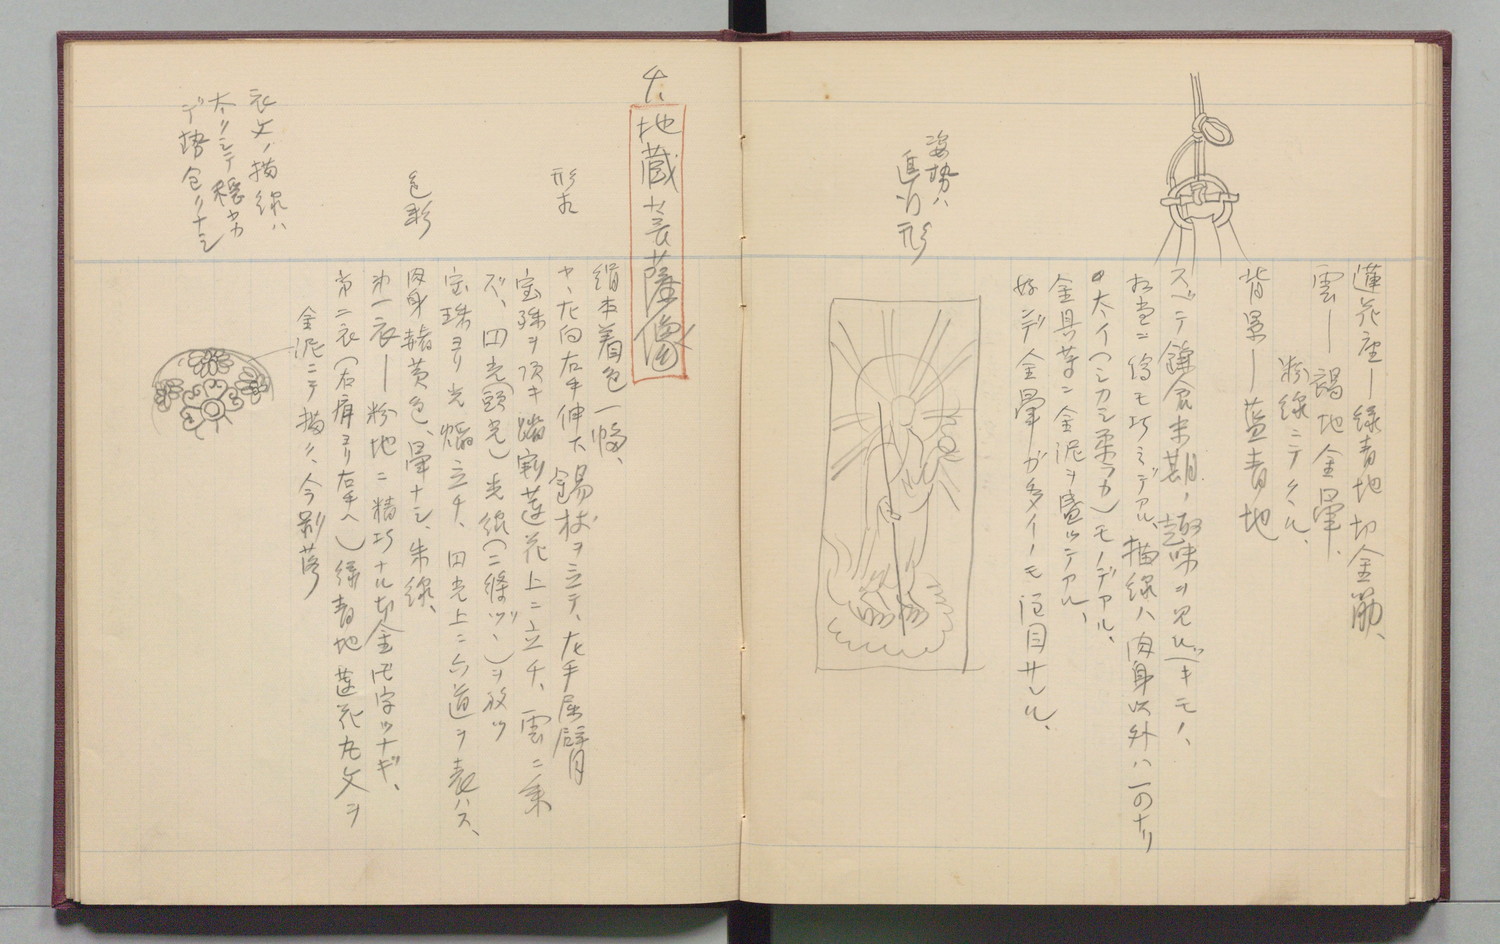 蓮花座―緑青地切金筋、
雲―褐地金暈、
粉線ニテクヽル、
背景―藍青地
スベテ鎌倉末期ノ趣味ヲ見ルベキモノ、
描線ハ肉身以外ハ
太イ(シカシ柔ラカ)モノデアル、
金具等ニ金泥ヲ盛ツテアル、
好ンデ金暈ガ多イノモ注目サレル、
姿勢ハ
進行形
地蔵菩薩像
絹本着色一幅、
形相
ヤヽ左向右手伸下錫杖ヲ立テ、左手屈臂
宝珠ヲ頂キ踏割蓮花上ニ立チ、雲ニ乗
ズ、円光(頭光)光線(二條ヅヽ)ヲ放ツ
宝珠ヨリ光焔立チ、円光上ニ六道ヲ表ハス、
色彩
肉身赭黄色、暈ナシ、朱線、
第一衣―粉地ニ精巧ナル切金卍字ツナギ、
第二衣(右肩ヨリ右手ヘ)緑青地蓮花丸文ヲ
金泥ニテ描ク、今剥落
衣文ノ描線ハ
太クシテ穏カ
デ勢ナシ